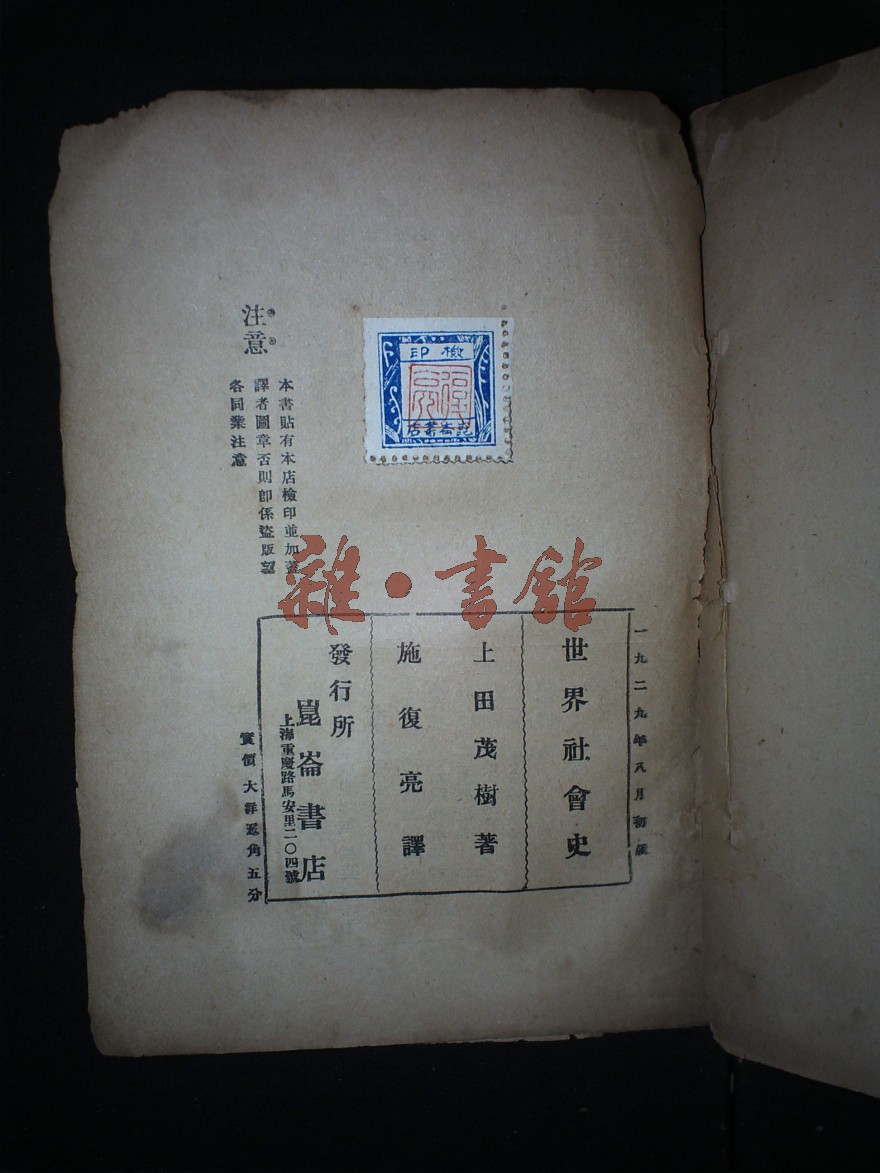 一九二九年八月初版
世界社會史
上田茂樹著
施復亮譯
發行所
崑崙書店
上海重慶路馬安里二〇四號
實價大洋
角五分
注意
本書貼有本店檢印並加蓋
譯者圖章否則卽係盜版望
各同業注意
檢印
復亮
崑崙書店
雜·書館